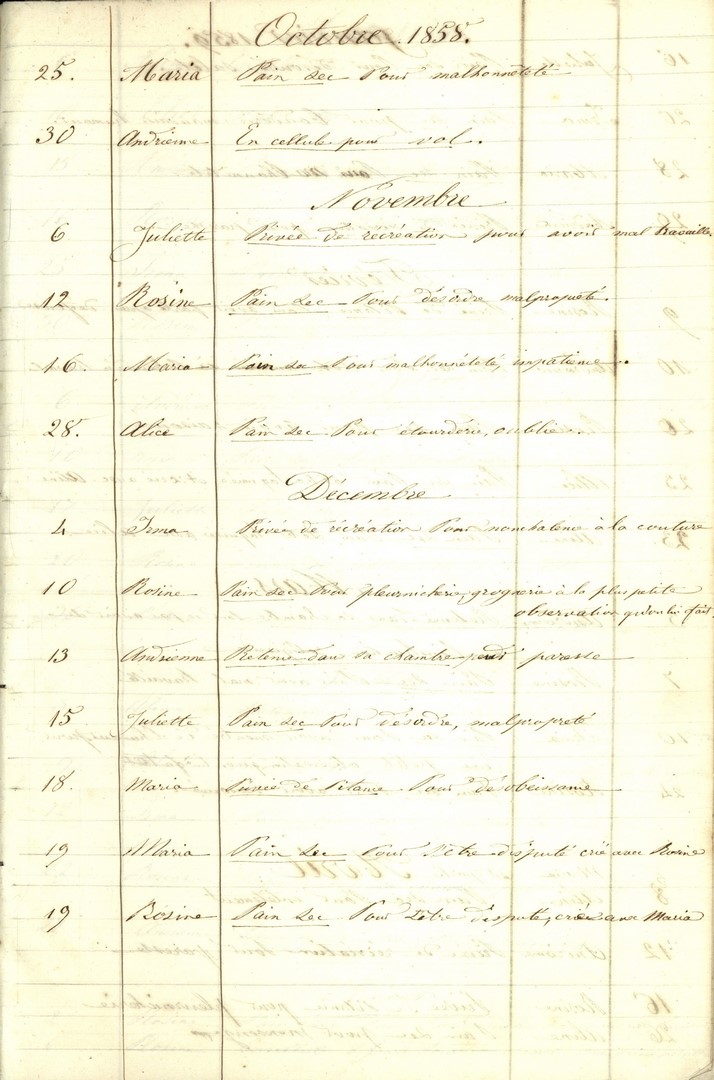 Octobre 1858.
25. Maria Pain sec Pour malhonnêteté
30 Andrienne En cellule pour vol.
Novembre
6 Juliette Privée de récréation pour avoir mal travaillé.
12 Rosine Pain sec Pour désordre malpropreté.
16. Maria Pain sec Pour malhonnêteté, impatience.
28. Alice Pain sec Pour étourderie, oublie.
Décembre
4 Irma Privée de récréation Pour nonchalence à la couture
10 Rosine Pain sec Pour pleurnicherie, grognerie à la plus petite
observation qu'on lui fait.
13 Andrienne Retenue dans sa chambre pour paresse
15 Juliette Pain sec Pour désordre, malpropreté
18. Maria Privée de Pitance Pour désobeissance
19 Maria Pain sec Pour s'être disputé crié avec Rosine
19 Rosine Pain sec Pour s'être disputé, criée avec Maria